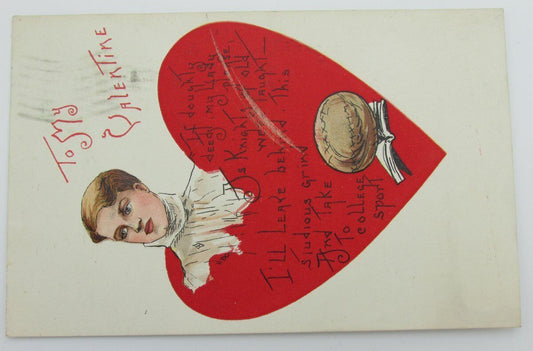 To My
Valentine
"If doughty
deeds my Lady
please,"
As Knights of old
were taught—
I'll Leave behind This
studious grind
And Take
To
college
sport